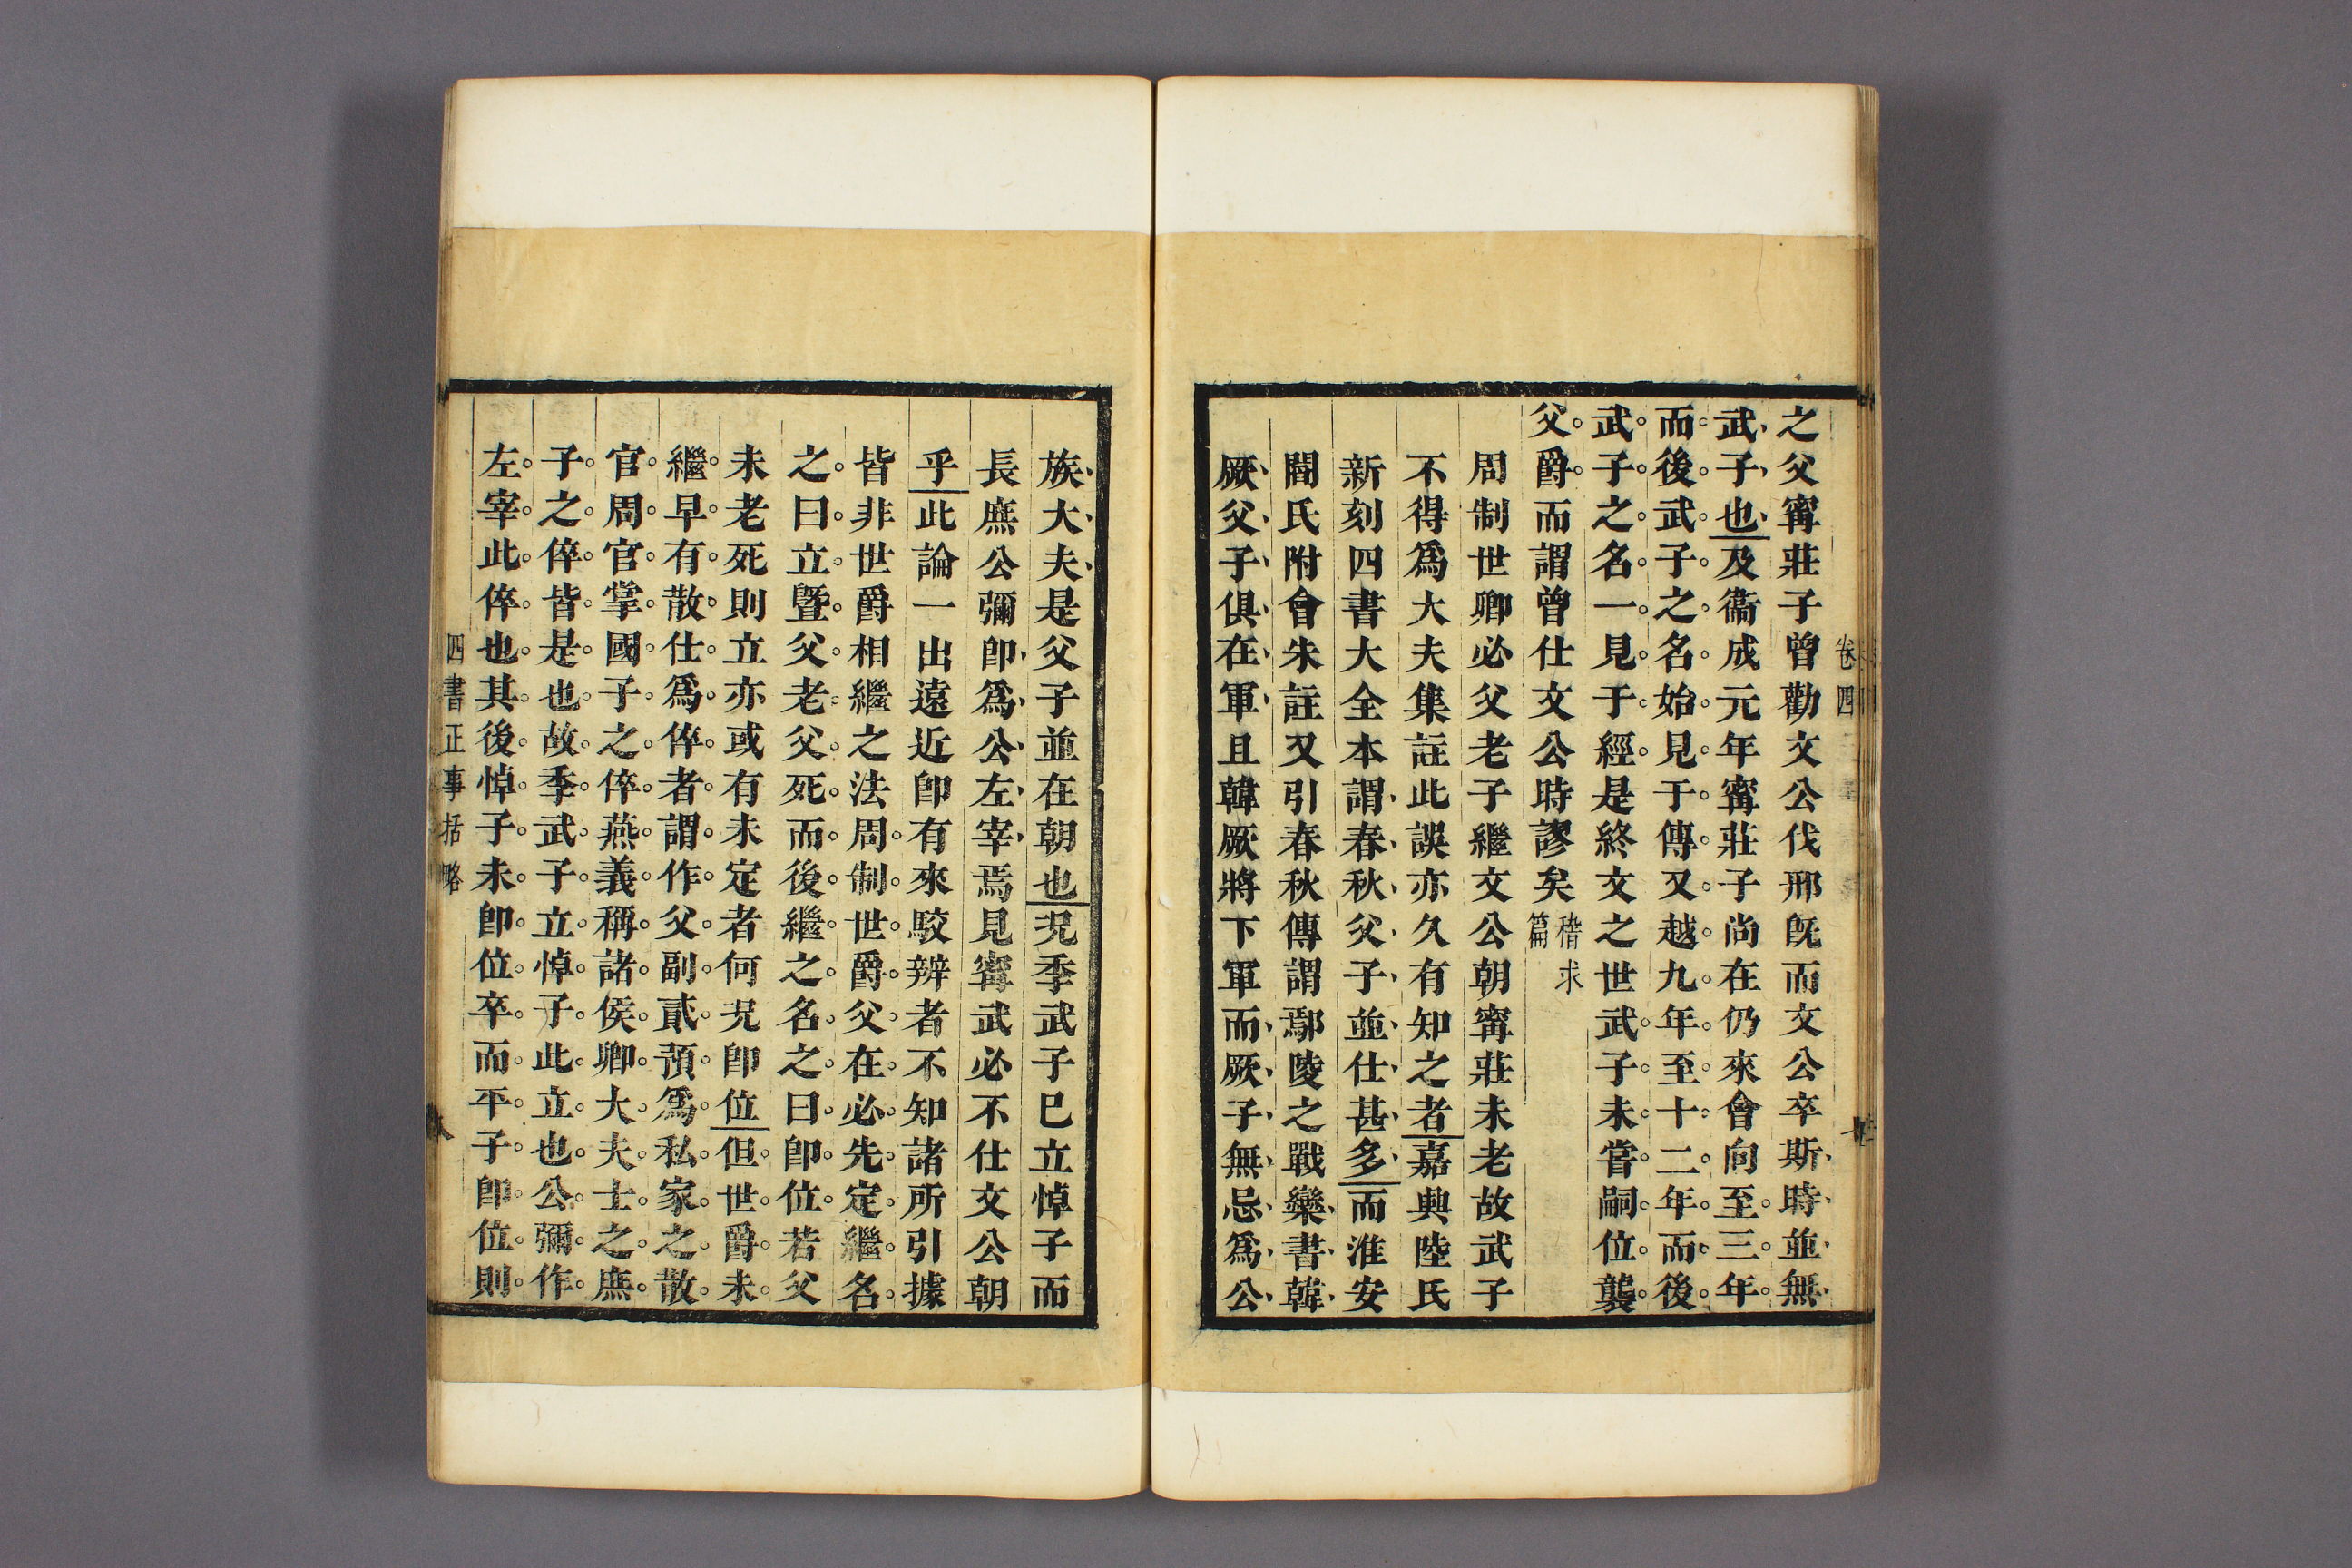 卷四
之父甯莊子曾勸文公伐邢旣而文公卒斯時並無
武子也及衞成元年甯莊子尚在仍來會向至三年
而後武子之名始見于傳又越九年至十二年而後
武子之名一見于經是終文之世武子未嘗嗣位襲
父爵而謂曾仕文公時謬矣稽求篇
周制世卿必父老子繼文公朝甯莊未老故武子
不得爲大夫集註此誤亦久有知之者嘉興陸氏
新刻四書大全本謂春秋父子並仕甚多而淮安
閻氏附會朱註又引春秋傳謂鄢陵之戰欒書韓
厥父子俱在軍且韓厥將下軍而厥子無忌爲公
族大夫是父子並在朝也況季武子已立悼子而
長庶公彌卽爲公左宰焉見甯武必不仕文公朝
乎此論一出遠近卽有來駮辨者不知諸所引據
皆非世爵相繼之法周制世爵父在必先定繼名
之曰立曁父老父死而後繼之名之曰卽位若父
未老死則立亦或有未定者何況卽位但世爵未
繼早有散仕爲倅者謂作父副貳預爲私家之散
官周官掌國子之倅燕義稱諸侯卿大夫士之庶
子之倅皆是也故季武子立悼子此立也公彌作
左宰此倅也其後悼子未卽位卒而平子卽位則
四書正事括略